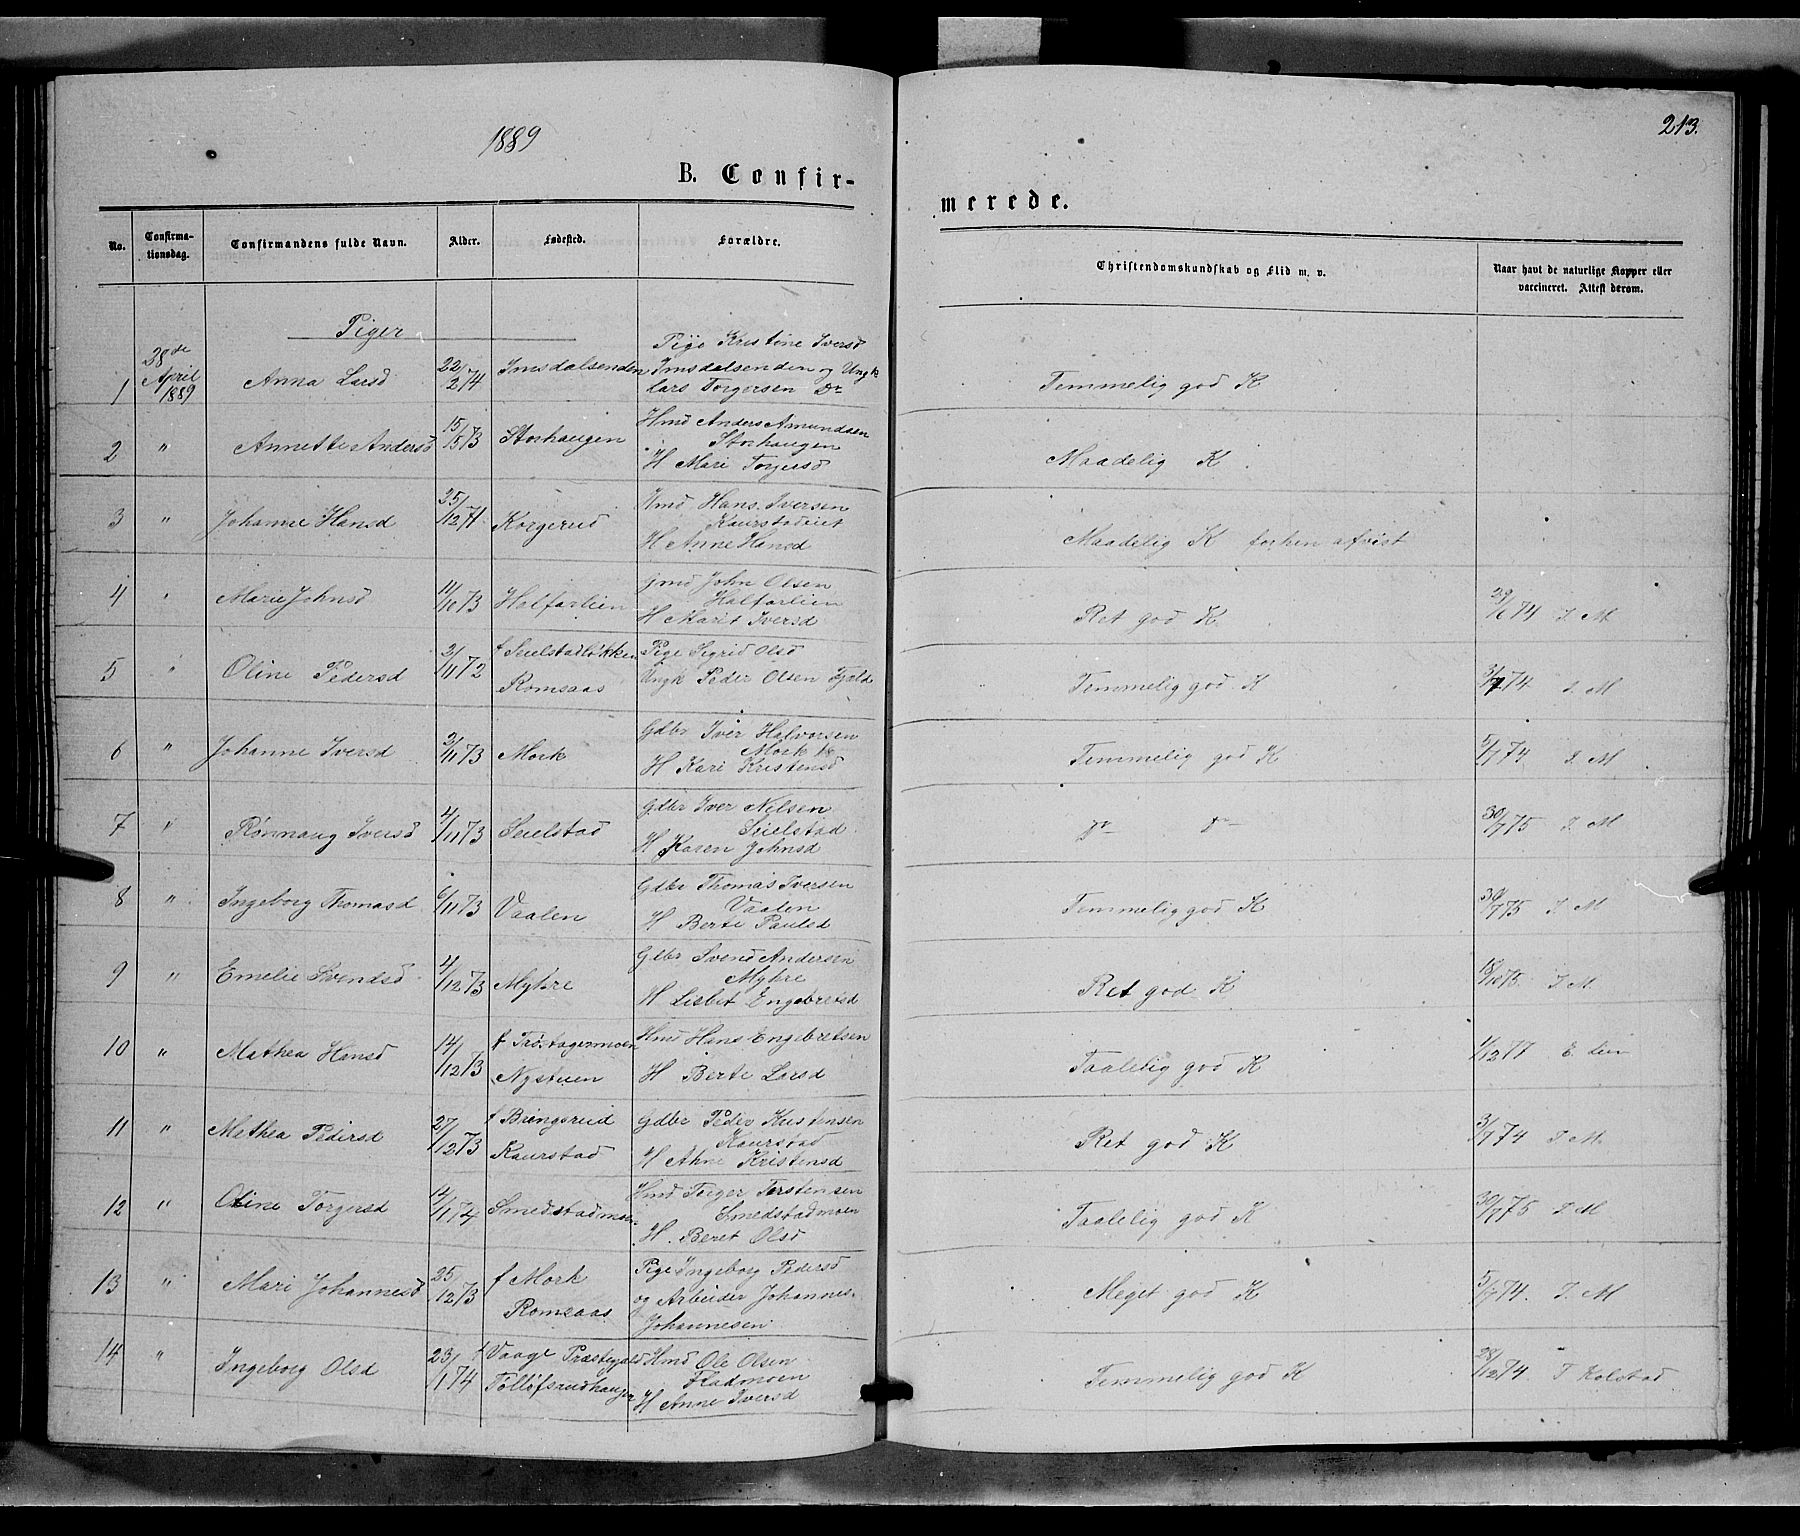 1889
213.
B. Confir-
merede.
No.
Confirma-
tionsdag.
Confirmandens fulde Navn.
Alder.
Fødested.
Forældre.
Christendomskundskab og Flid m. v.
Naar havt de naturlige Kopper eller
vaccineret. Attest derom.
Piger
1 28de April 1889 Anna Larsd 22/2 74 Imsdalsenden
Pige Kristine Iversd
Imsdalsenden og Ungk
Lars Torgersen Do
Temmelig god K
2 " Annette Andersd 15/5 73 Storhaugen
Hmd Anders Amundsen
Storhaugen
H Mari Torgersd
Maadelig K.
3 " Johanne Hansd 25/12 71. Korgerud
Hmd Hans Iversen
Kaurstadeiet
H Anne Hansd
Maadelig K forhen afvist
4 " Marie Johnsd 11/10 73 Halfarlien
John Olsen
Halfarlien
H Marit Iversd
Ret god K. 29/6 74 I M
5 " Oline Pedersd 2/11 72 f Seielstadløkken
Romsaas
Pige Sigrid Olsd
Ungk Peder Olsen Fjeld
Temmelig god K 3/7 74 I. M
6 " Johanne Iversd 2/11 73 Mork
Gdbr Iver Halvorsen
Mork
H Kari Kristensd
Temmelig god K 5/7 74 I. M
7 " Rønnaug Iversd 4/11 73 Seielstad
Gdbr Iver Nilsen
Seielstad
H Karen Johnsd
Do Do 30/7 75 I. M
8 " Ingeborg Thomasd 6/11 73 Vaalen
Gdbr Thomas Iversen
Vaalen
H Berte Paulsd
Temmelig god K 30/7 75 I. M
9 " Emelie Svendsd 4/12 73 Myhre
Gdbr Svend Andersen
Myhre
H Lisbet Engebretsd
Ret god K 18/10 75. I M.
10 " Mathea Hansd 14/12 73 f Trøstagermoen
Nystuen
Hmd Hans Engebretsen
H Berte Larsd
Taalelig god K 1/12 77 E. Lien
11 " Mathea Pedersd 27/12 73 f Bringsrud
Kaurstad
Gdbr Peder Kristensen
Kaurstad
H Anne Kristensd
Ret god K 3/7 74 I. M.
12 " Oline Torgersd 12/1 74 Smedstadmoen
Hmd Torger Torstensen
Smedstadmoen
H. Beret Olsd
Taalelig god K 30/7 75 I M
13 " Mari Johannesd 25/12 73 f Mork
Romsaas
Pige Ingeborg Pedersd
og Arbeider Johannes
Johannesen
Meget god K 5/7 74. I. M
14 " Ingeborg Olsd 23/1 74 f Vaage Præstegjeld
Tolløfsrudhaugen
Hmd Ole Olsen
Fladmoen
H Anne Iversd
Temmelig god K 28/12 74. I Kolstad